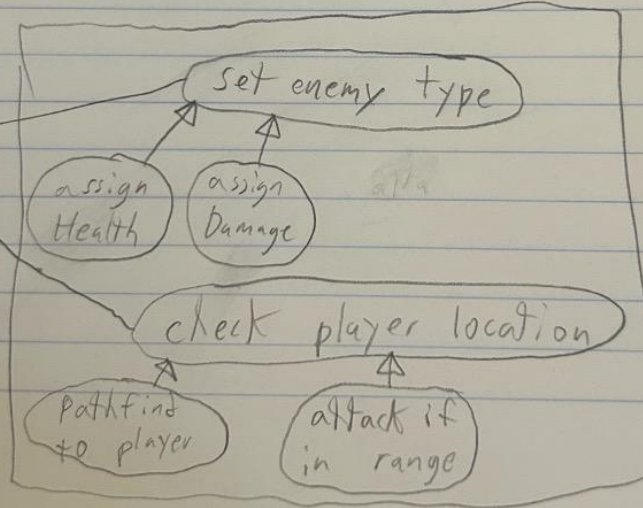 set enemy type
assign
Health
assign
Damage
check player location
pathfind
to player
attack if
in range